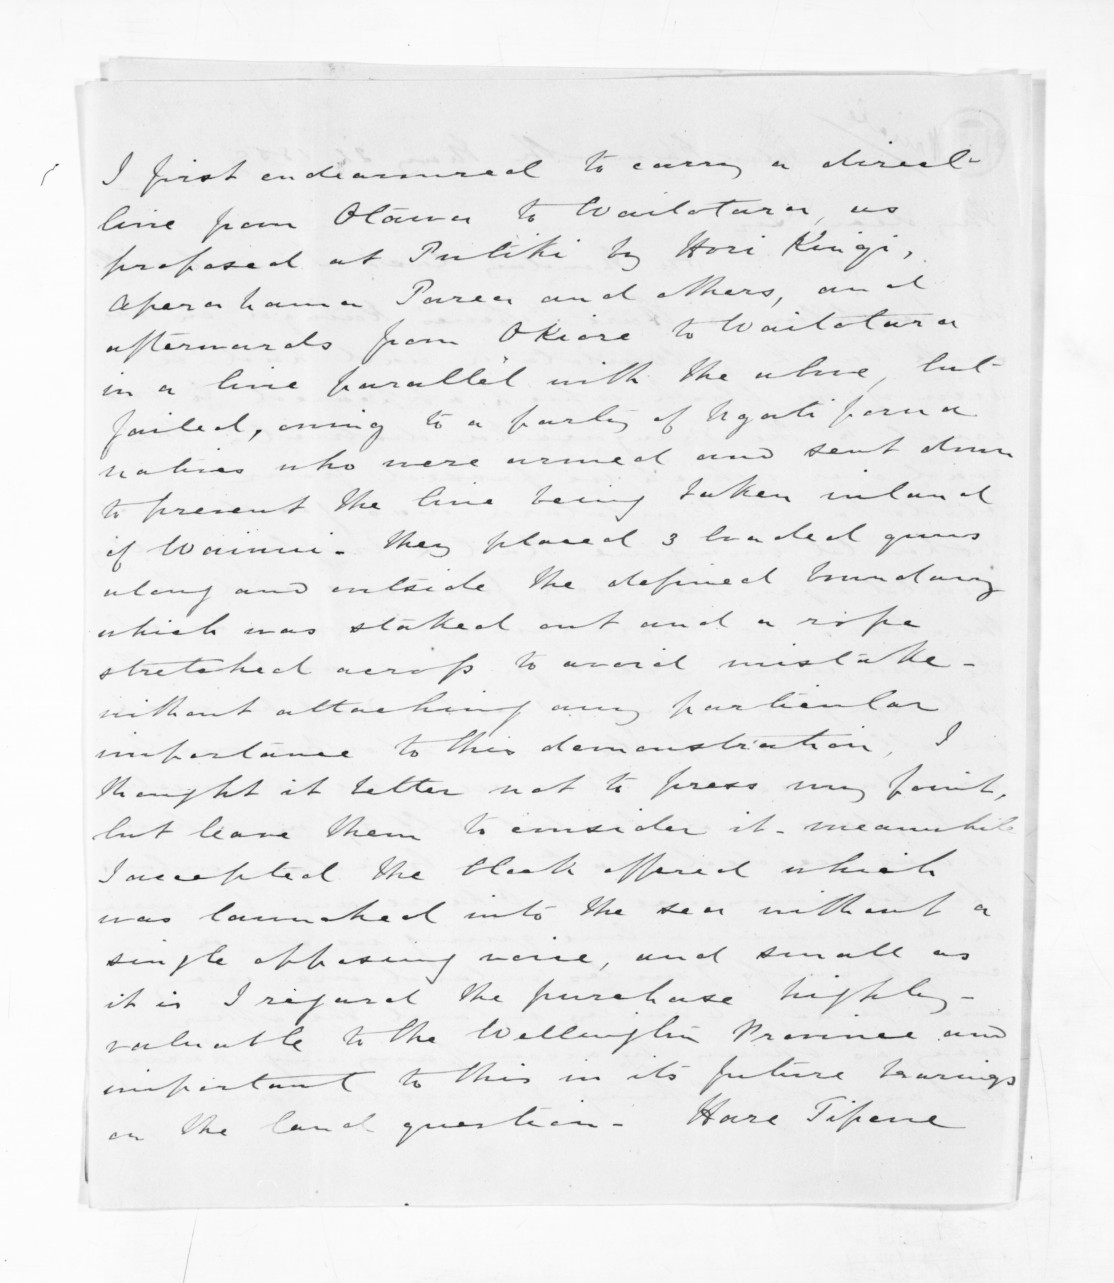 I first endeavoured to carry a direct
line from Otaua to Waitotara, as
proposed at Putiki by Hori Kingi,
Aperahama Parea and others, and
afterwards from Okiore to Waitotara
in a line parallel with the above, but
failed, owing to a party of Ngati porua
natives who were armed and sent down
to prevent the line being taken inland
of Wainui - they placed 3 loaded guns
along and outside the defined boundary
which was staked out and a rope
stretched across to avoid mistake -
without attaching any particular
importance to this demonstration, I
thought it better not to press my point,
but leave them to consider it - meanwhile
I accepted the block offered which
was launched into the sea without a
single opposing voice, and small as
it is I regard the purchase highly -
valuable to the Wellington Province and
important to this in its future bearings
on the land question - Hare Tipene